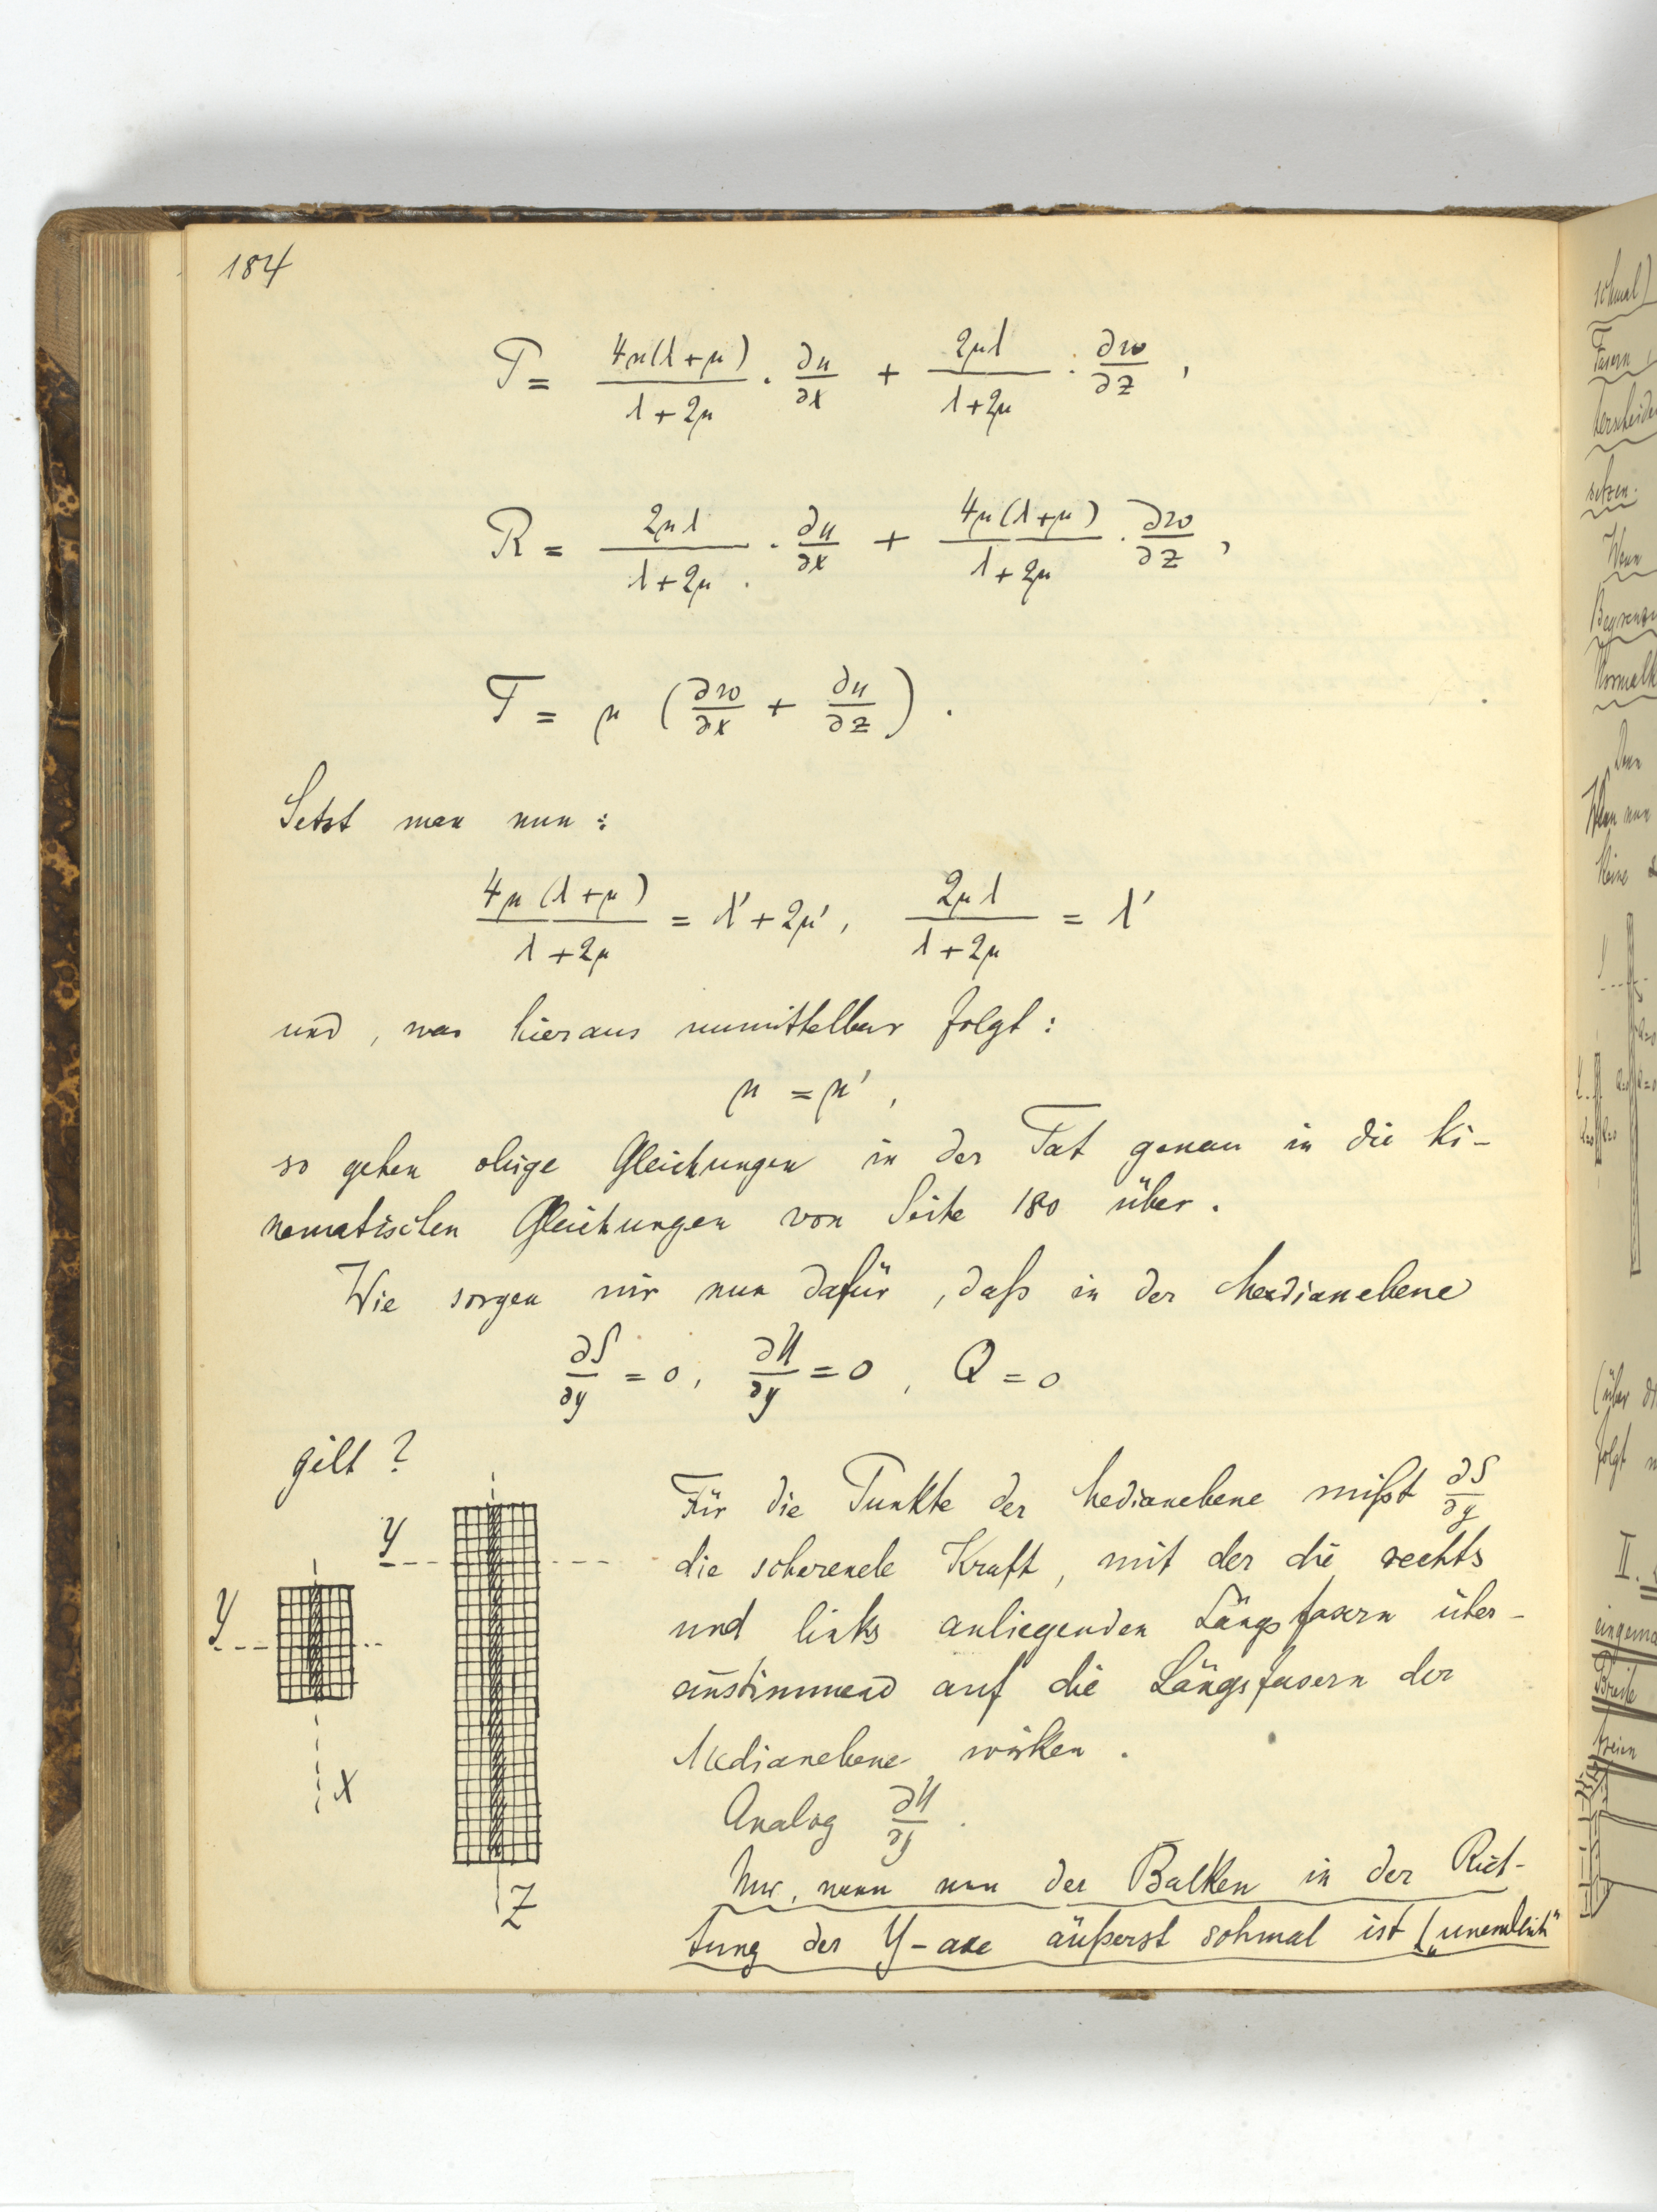 184
P = 4μ(λ+μ)/(λ+2μ) · ∂u/∂x + 2μλ/(λ+2μ) · ∂w/∂z ,
R = 2μλ/(λ+2μ) · ∂u/∂x + 4μ(λ+μ)/(λ+2μ) · ∂w/∂z ,
T = μ (∂w/∂x + ∂u/∂z) .
Setzt man nun :
4μ(λ+μ)/(λ+2μ) = λ' + 2μ' , 2μλ/(λ+2μ) = λ'
und , was hieraus unmittelbar folgt :
μ = μ' ,
so gehen obige Gleichungen in der Tat genau in die ki-
nematischen Gleichungen von Seite 180 über .
Wie sorgen wir nun dafür , daß in der Medianebene
∂S/∂y = 0 , ∂U/∂y = 0 , Q = 0
gilt ?
Y
Y
X
Z
Für die Punkte der Medianebene mißt ∂S/∂y
die scherende Kraft , mit der die rechts
und links anliegenden Längsfasern über-
einstimmend auf die Längsfasern der
Medianebene wirken .
Analog ∂U/∂y .
Nur , wenn nun der Balken in der Rich-
tung der Y-axe äußerst schmal ist („unendlich"
schmal)
Fasern
setzen.
Wenn
Denn
Wenn nun
keine
(über
folgt
II.
Breite
freien